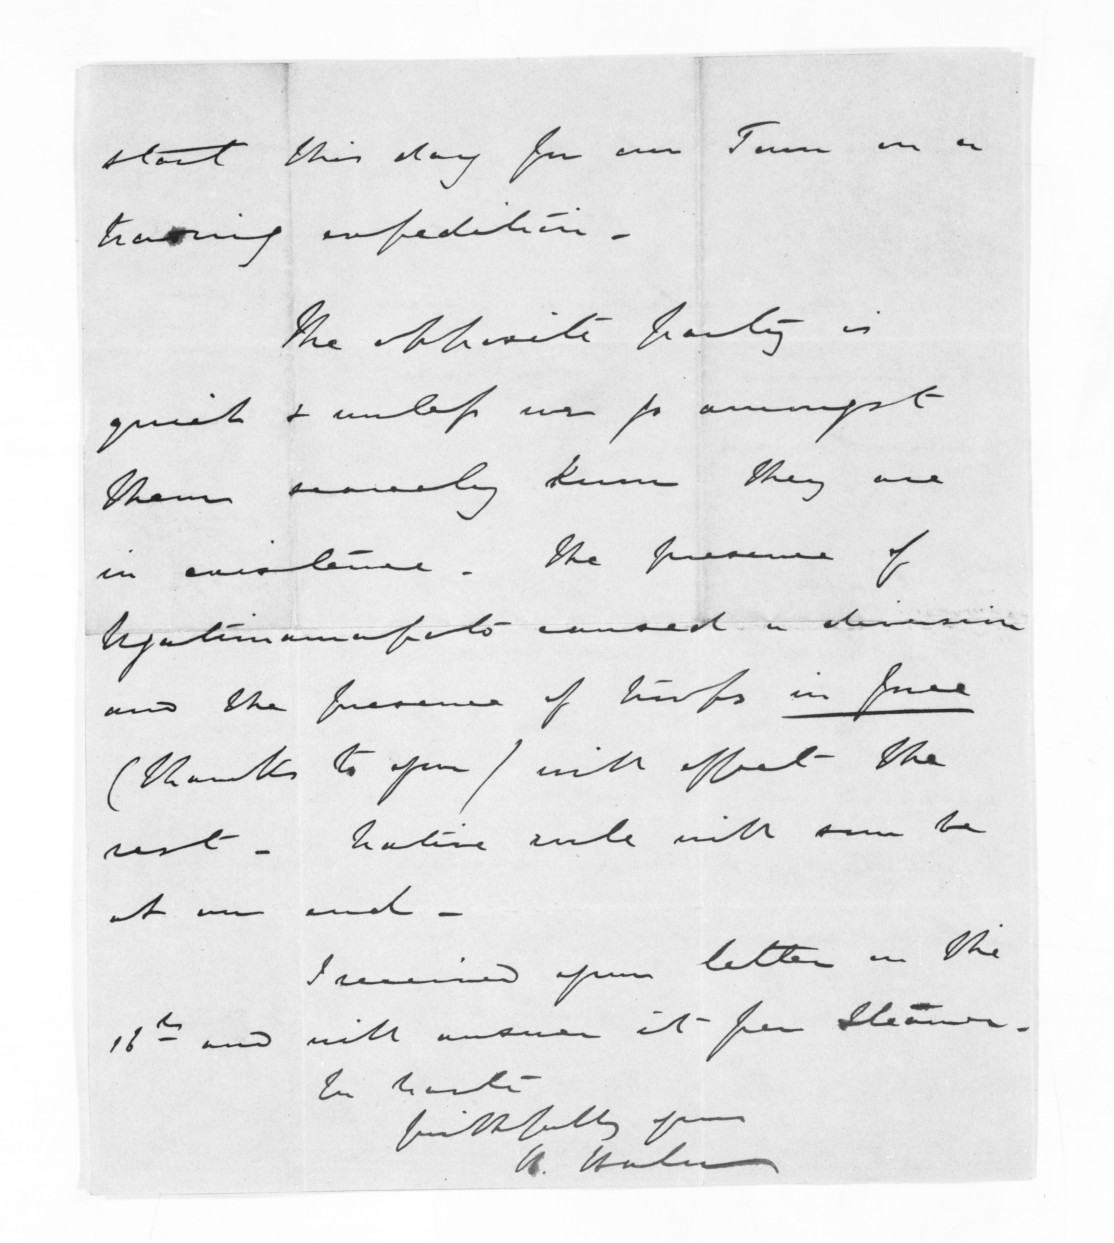 start this day for our Town on a
trading expedition -
The opposite party is
quiet & unless we go amongst
them scarcely know they are
in existence - The presence of
Ngatimamapoto caused a diversion
and the presence of troops in force
(thanks to you) will effect the
rest - Native rule will soon be
at an end -
I received your letter on the
16th and will answer it per Steamer -
In haste
faithfully yours